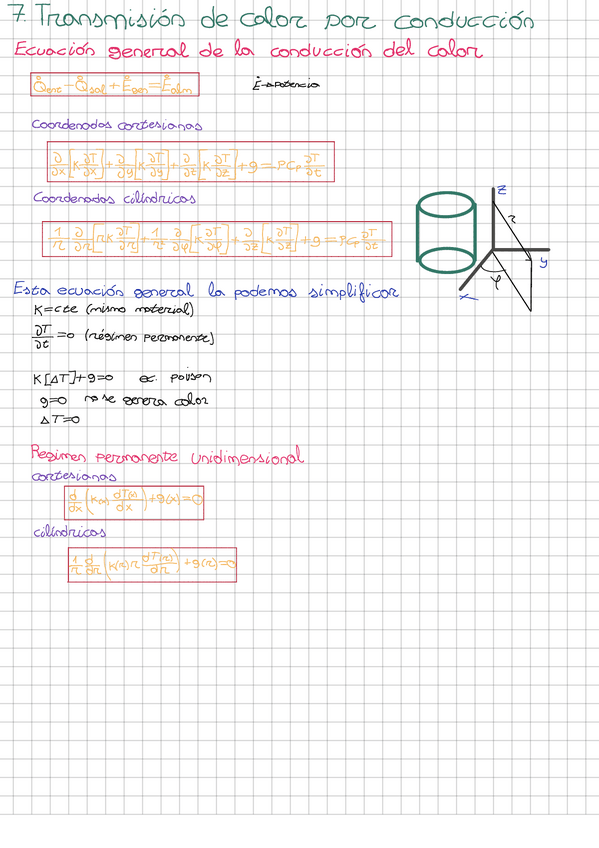 7 Transmisión de calor por conducción
Ecuación general de la conducción del calor
Q̇ent − Q̇sal + Ėgen = Ėalm    Ė→potencia
Coordenadas cartesianas
∂/∂x [K ∂T/∂x] + ∂/∂y [K ∂T/∂y] + ∂/∂z [K ∂T/∂z] + g = ρCp ∂T/∂t
Coordenadas cilíndricas
1/r ∂/∂r [rK ∂T/∂r] + 1/r ∂/∂φ [K ∂T/∂φ] + ∂/∂z [K ∂T/∂z] + g = ρCp ∂T/∂t
z
r
y
φ
x
Esta ecuación general la podemos simplificar
K=cte (mismo material)
∂T/∂t =0 (régimen permanente)
K[ΔT]+g=0 ec. poison
g=0 no se genera calor
ΔT=0
Regimen permanente unidimensional
cartesianas
d/dx (K(x) dT(x)/dx) + g(x) = 0
cilíndricas
1/r d/dr (K(r) r dT(r)/dr) + g(r) = 0